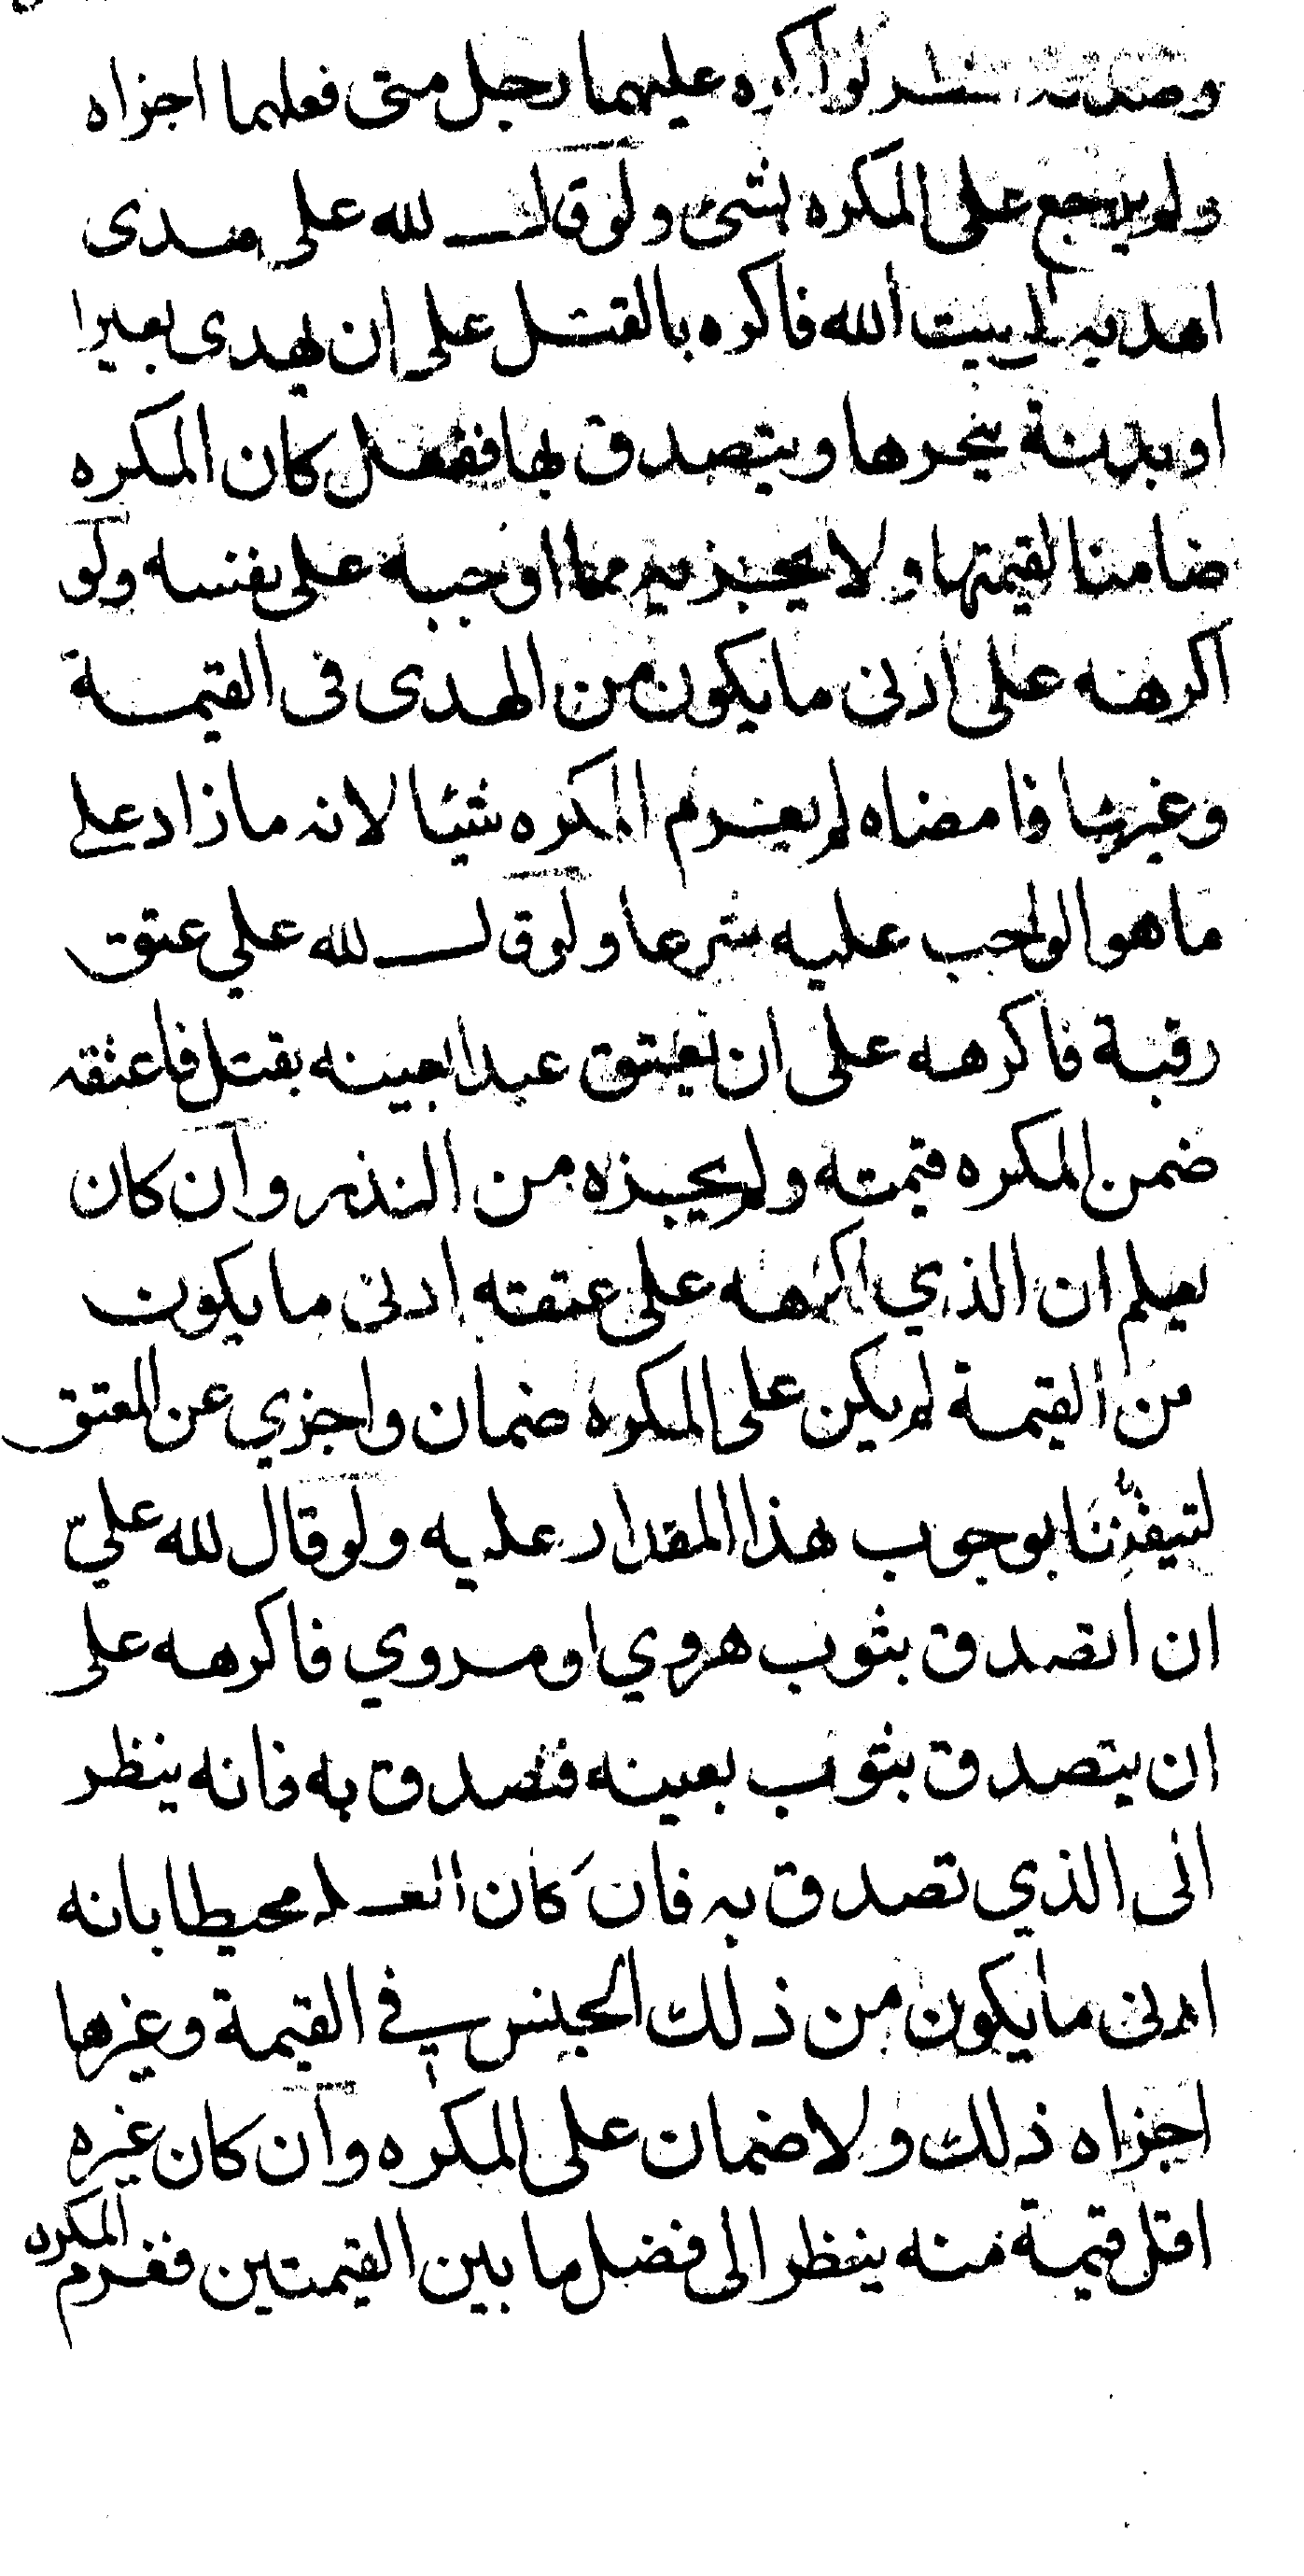 وصدقة نذر لو اكره عليهما رجل متى فعلهما اجزاه
ولم يرجع على المكره بشئ ولو قال لله على هدى
اهديه الى بيت الله فاكره بالقتل على ان يهدى بعيرا
او بدنة ينحرها ويتصدق بها ففعل كان المكره
ضامنا لقيمتها ولا يجزيه مما اوجبه على نفسه ولو
اكرهه على ادنى ما يكون من الهدى فى القيمة
وغيرها فامضاه لم يغرم المكره شيئا لانه ما زاد على
ما هو الواجب عليه شرعا ولو قال لله علي عتق
رقبة فاكرهه على ان يعتق عبدا بعينه بقتل فاعتقه
ضمن المكره قيمته ولم يجزه من النذر وان كان
يعلم ان الذي اكرهه على عتقته ادنى ما يكون
من القيمة لم يكن على المكره ضمان واجزي عن المعتق
لتيقننا بوجوب هذا المقدار عليه ولو قال لله عليّ
ان اتصدق بثوب هروي او مروي فاكرهه على
ان يتصدق بثوب بعينه فتصدق به فانه ينظر
الى الذي تصدق به فان كان العلم محيطا بانه
ادنى ما يكون من ذلك الجنس في القيمة وغيرها
اجزاه ذلك ولا ضمان على المكره وان كان غيره
اقل قيمة منه ينظر الى فضل ما بين القيمتين فغرم المكره